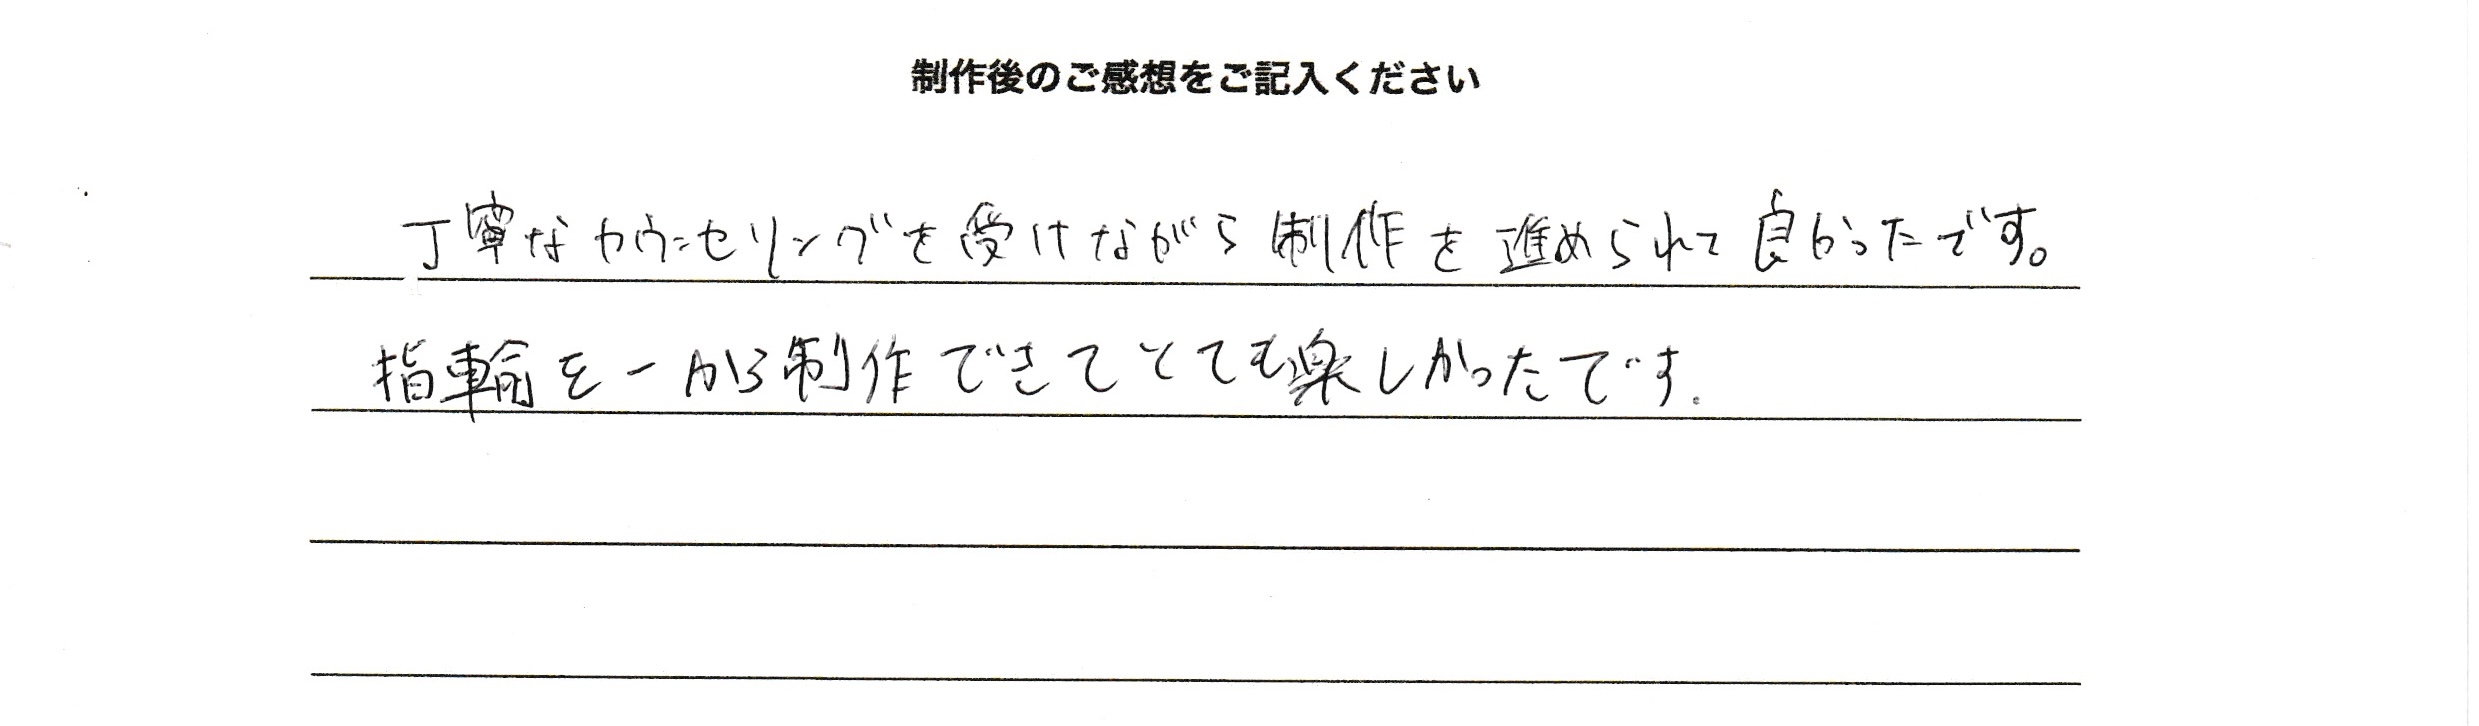 制作後のご感想をご記入ください
丁寧なカウンセリングを受けながら制作を進められて良かったです。
指輪を一から制作できてとても楽しかったです.